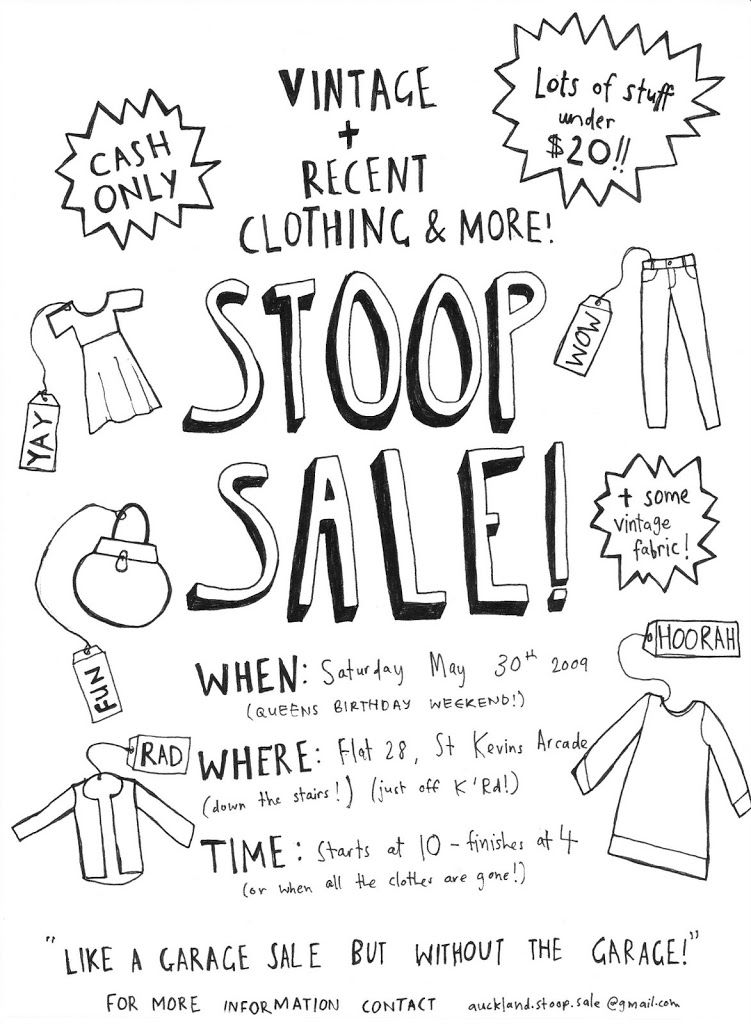 VINTAGE
+
RECENT
CLOTHING & MORE!
CASH
ONLY
Lots of stuff
under
$20!!
STOOP
SALE!
YAY
WOW
+ some
vintage
fabric!
FUN
HOORAH
RAD
WHEN: Saturday May 30th 2009
(QUEENS BIRTHDAY WEEKEND!)
WHERE: Flat 28, St Kevins Arcade
(down the stairs!) (just off K'Rd!)
TIME: Starts at 10 - finishes at 4
(or when all the clothes are gone!)
"LIKE A GARAGE SALE BUT WITHOUT THE GARAGE!"
FOR MORE INFORMATION CONTACT auckland.stoop.sale@gmail.com